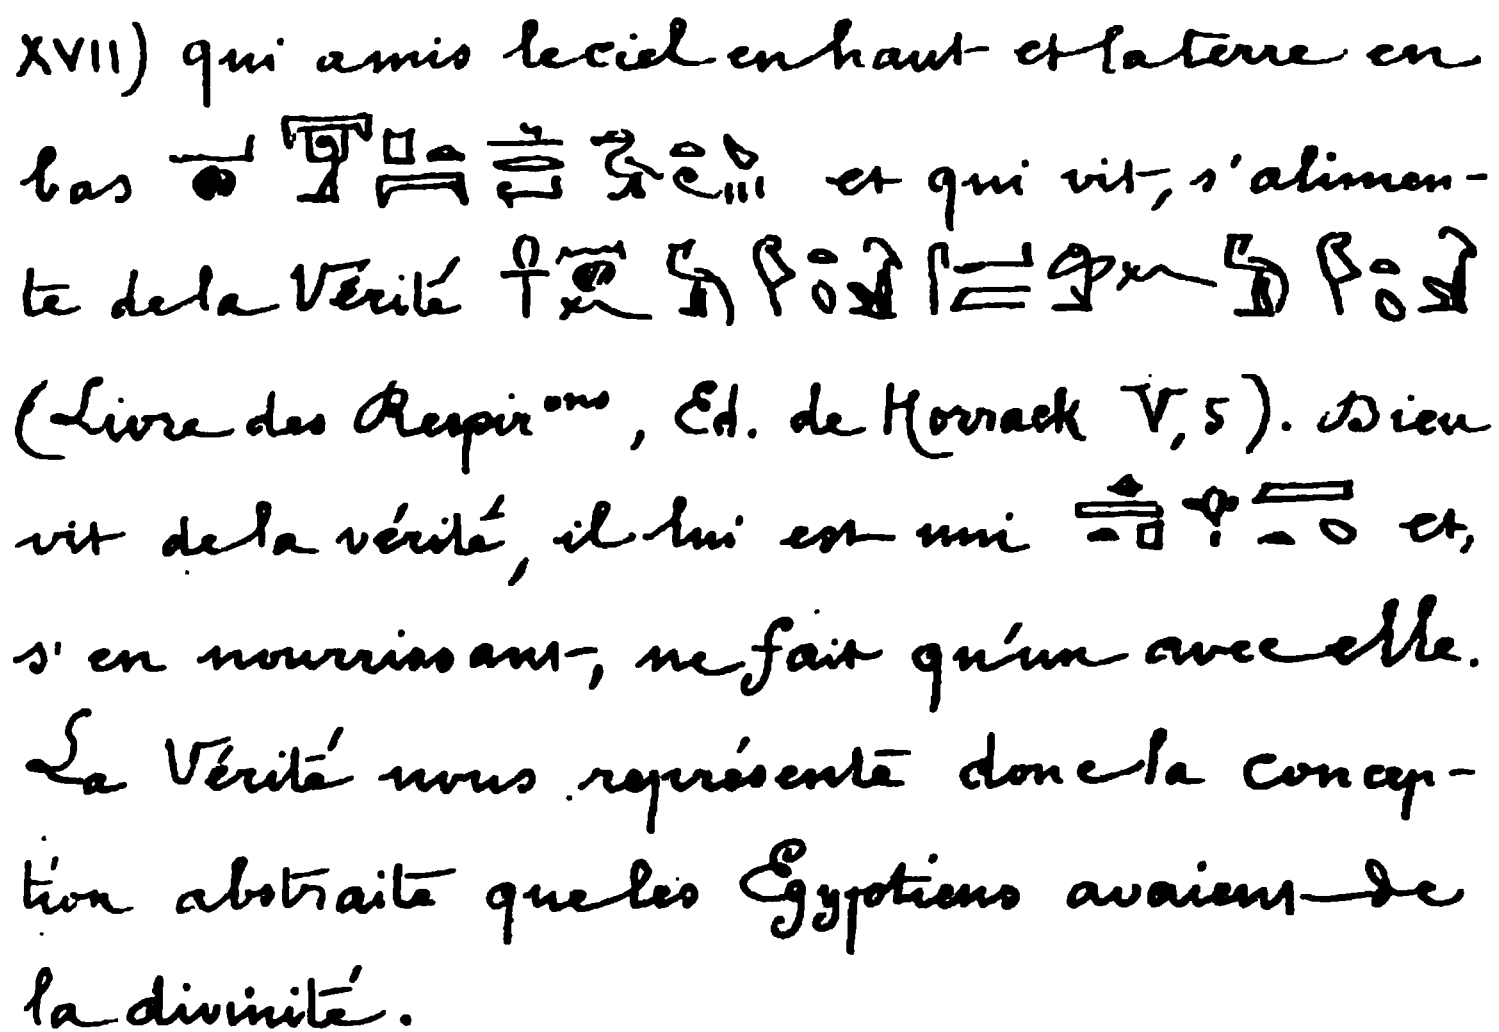 XVII) qui a mis le ciel en haut et la terre en
bas et qui vit, s'alimen-
te de la Vérité
(Livre des Respir ons, Ed. de Horrack V, 5). Dieu
vit de la vérité, il lui est uni et,
s'en nourrissant, ne fait qu'un avec elle.
La Vérité nous représente donc la concep-
tion abstraite que les Egyptiens avaient de
la divinité.